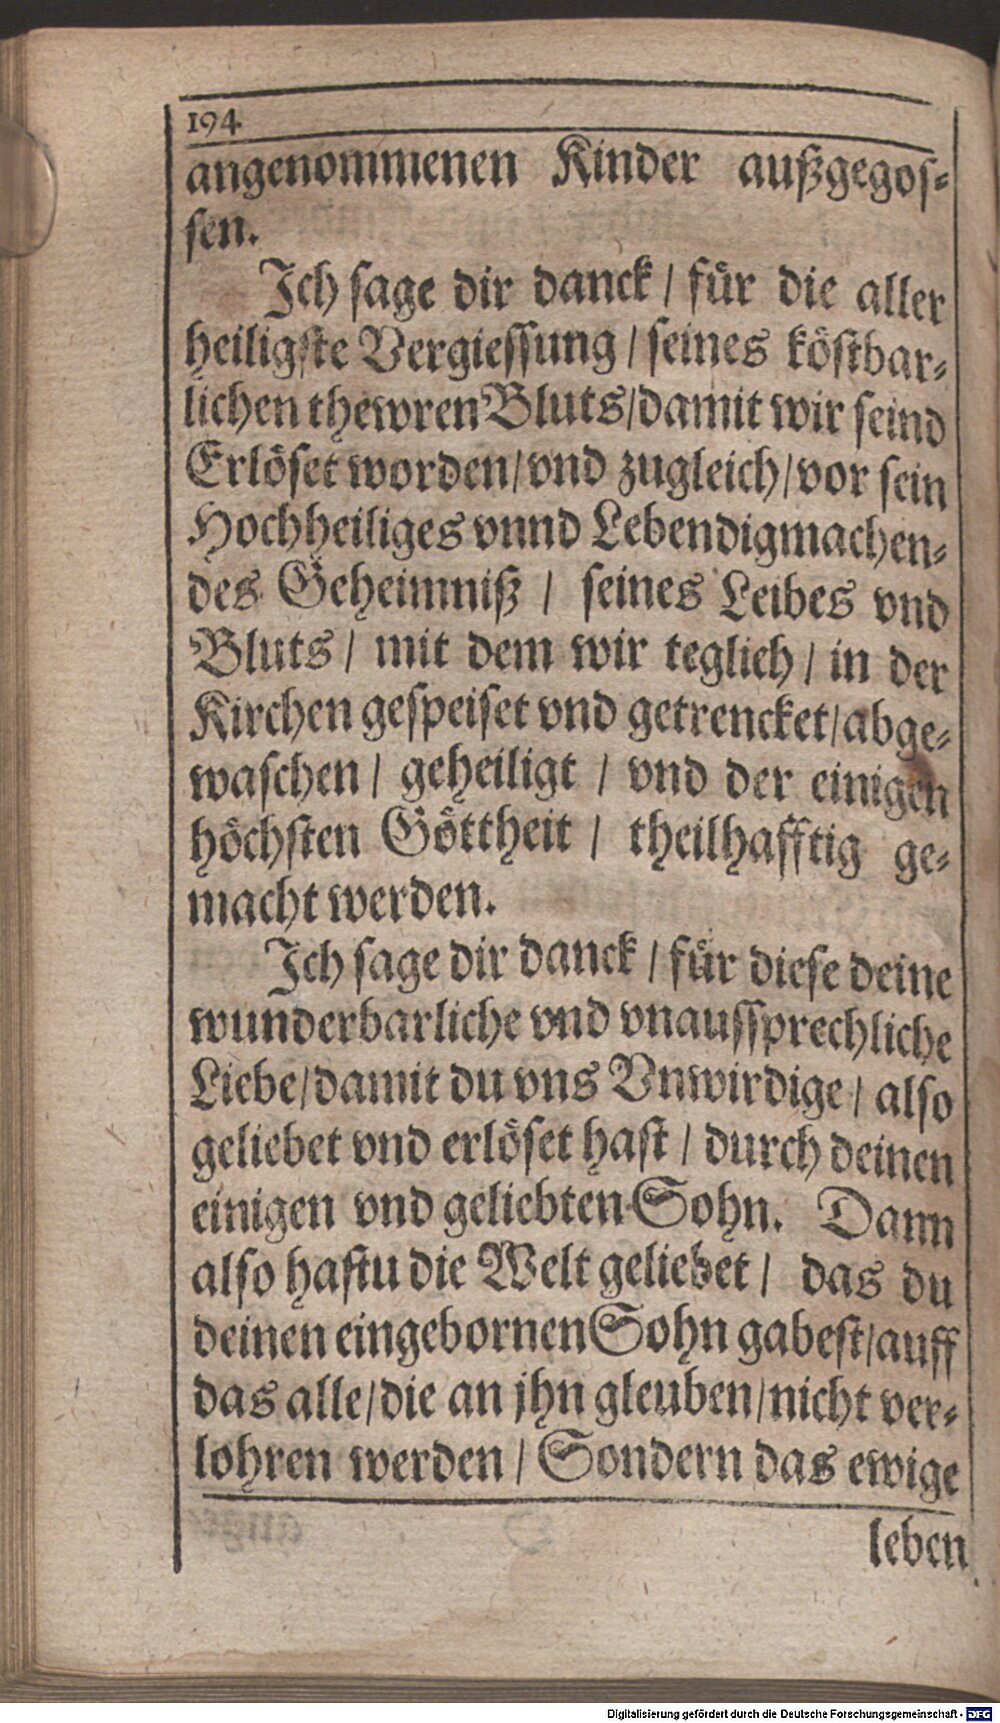 194
angenommenen Kinder außgegos-
sen.
Ich sage dir danck / für die aller
heiligste Vergiessung / seines köstbar-
lichen thewren Bluts / damit wir seind
Erlöset worden / vnd zugleich / vor sein
Hochheiliges vnnd Lebendigmachen-
des Geheimniß / seines Leibes vnd
Bluts / mit dem wir teglich / in der
Kirchen gespeiset vnd getrencket / abge-
waschen / geheiligt / vnd der einigen
höchsten Göttheit / theilhafftig ge-
macht werden.
Ich sage dir danck / für diese deine
wunderbarliche vnd vnaussprechliche
Liebe / damit du vns Vnwirdige / also
geliebet vnd erlöset hast / durch deinen
einigen vnd geliebten Sohn. Dann
also hastu die Welt geliebet / das du
deinen eingebornen Sohn gabest / auff
das alle / die an jhn gleuben / nicht ver-
lohren werden / Sondern das ewige
leben
Digitalisierung gefördert durch die Deutsche Forschungsgemeinschaft - DFG